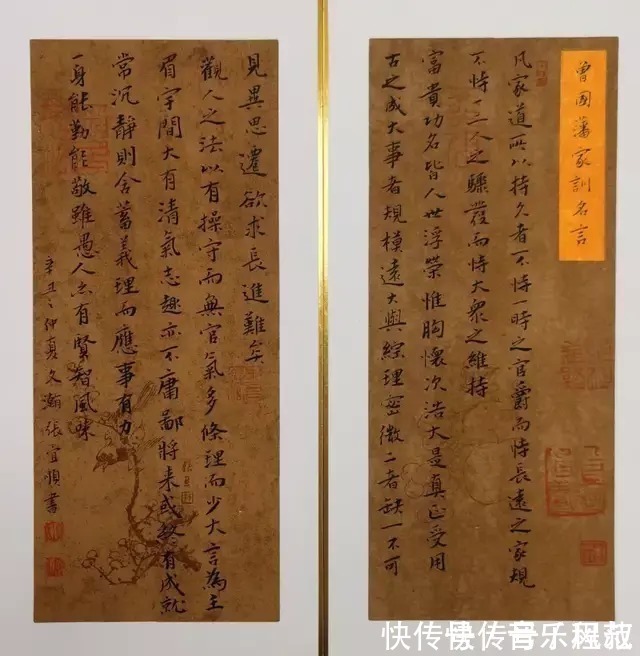 曾國藩家訓名言
凡家道所以持久者不恃一時之官爵而恃長遠之家規
不恃一二人之驟發而恃大眾之維持
富貴功名皆人世浮榮惟胸懷次浩大是真正受用
古之成大事者規模遠大與綜理密微二者缺一不可
見異思遷欲求長進難矣
觀人之法以有操守而無官氣多條理而少大言為主
眉宇間大有清氣志趣亦不庸鄙將來或終有成就
常沉靜則含蓄義理而應事有力
一身能勤能敬雖愚人亦有賢智風味
辛丑仲夏文瀚張宜順書
快传号